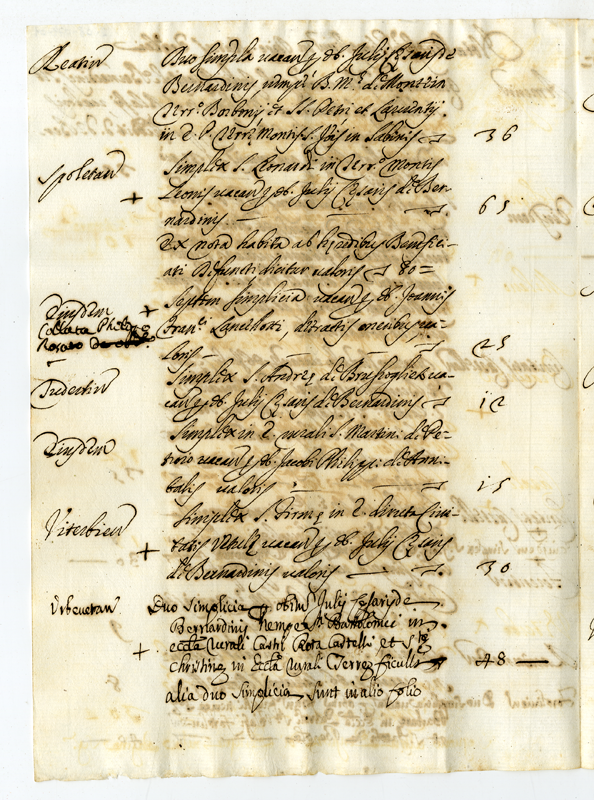 Reatin Duo simplicia vacan p ob. Julij Cesaris de
Bernardinis nempe B. M. de
Borboni et SS. Petri et Laurentij
in Montis S. in Sabinis 36
Spoletan Simplex S. Leonardi in Terr. Montis
+ Leonis vacan p ob. Julij Cesaris de Ber-
nardinis 65
Ex nota habita ab heredibus Benefici-
ati Defuncti dicitur valoris 80
Eiusdem + Septem simplicia vacan p ob. Joannis
Collata Fran. Lancellotti, detractis oneribus va-
loris 25
Tudertin Simplex S. Andree de va-
can p ob. Julij Cesaris de Bernardinis 12
Eiusdem Simplex in E. rurali S. Martini de Pe-
vacan p ob. Jacobi Philippi de Anni-
balis valoris 15
Viterbien Simplex S. in E. diruta Civi-
+ tatis vacan p ob. Julij Cesaris
de Bernardinis valoris 30
Urbevetan Duo simplicia p obitum Julij Cesaris de
Bernardinis nempe S. Bartolomei in
+ eccla rurali Castri Rota Castelli et S.
christine in Eccla rurali Terre ficulle 48
alia duo simplicia sunt in alio folio